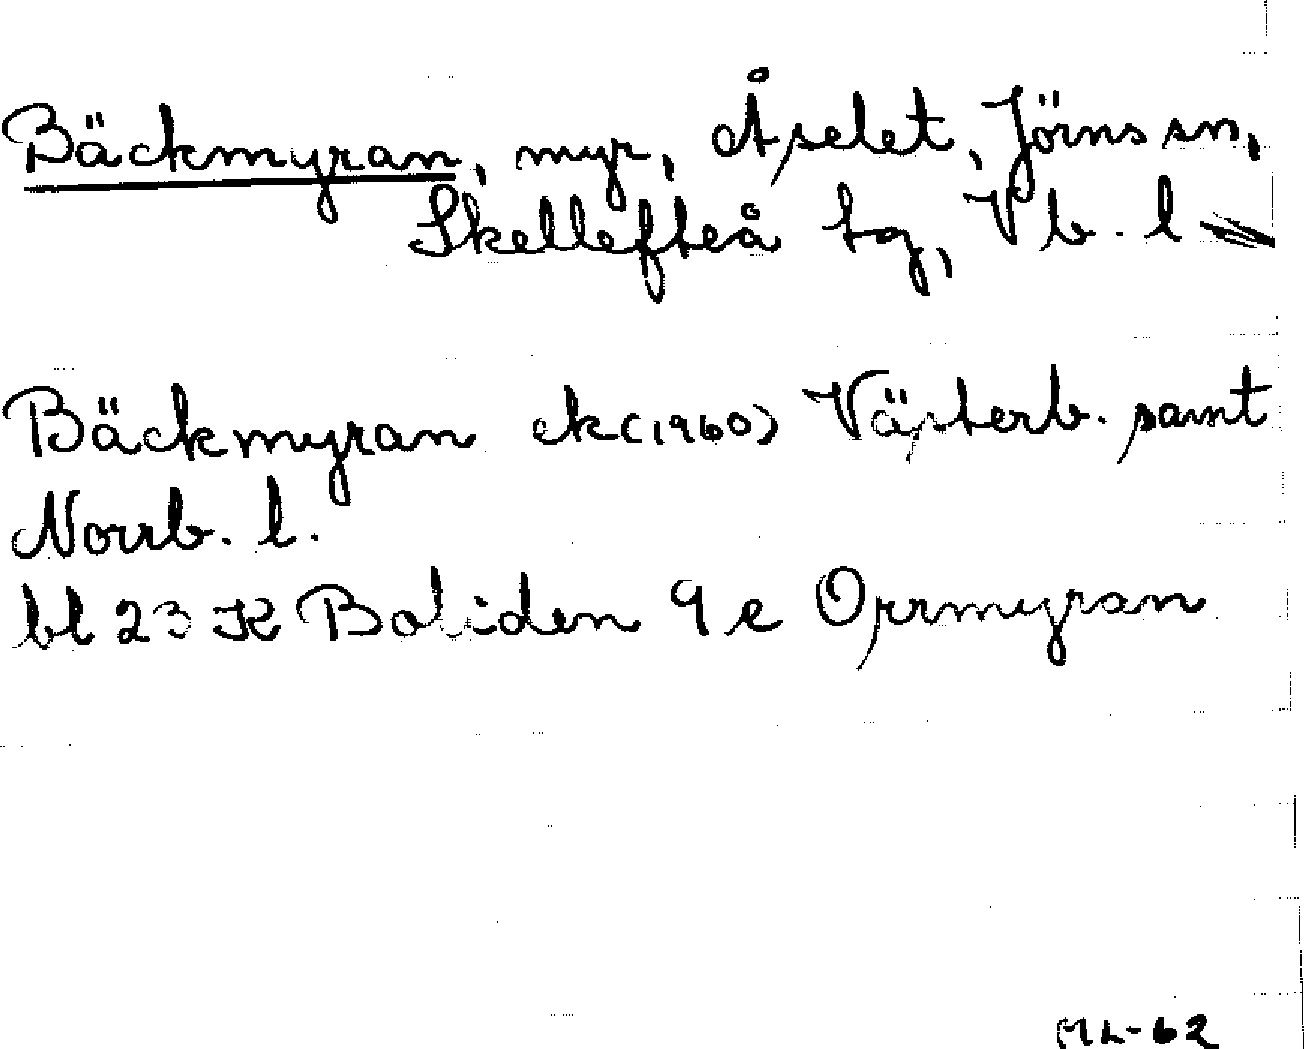 Bäckmyran, myr, Åselet, Jörns sn,
Skellefteå tg, Vb. l
Bäckmyran ek (1960) Västerb. samt
Norrb. l.
bl 23 K Boliden 9 e Orrmyran
ML-62